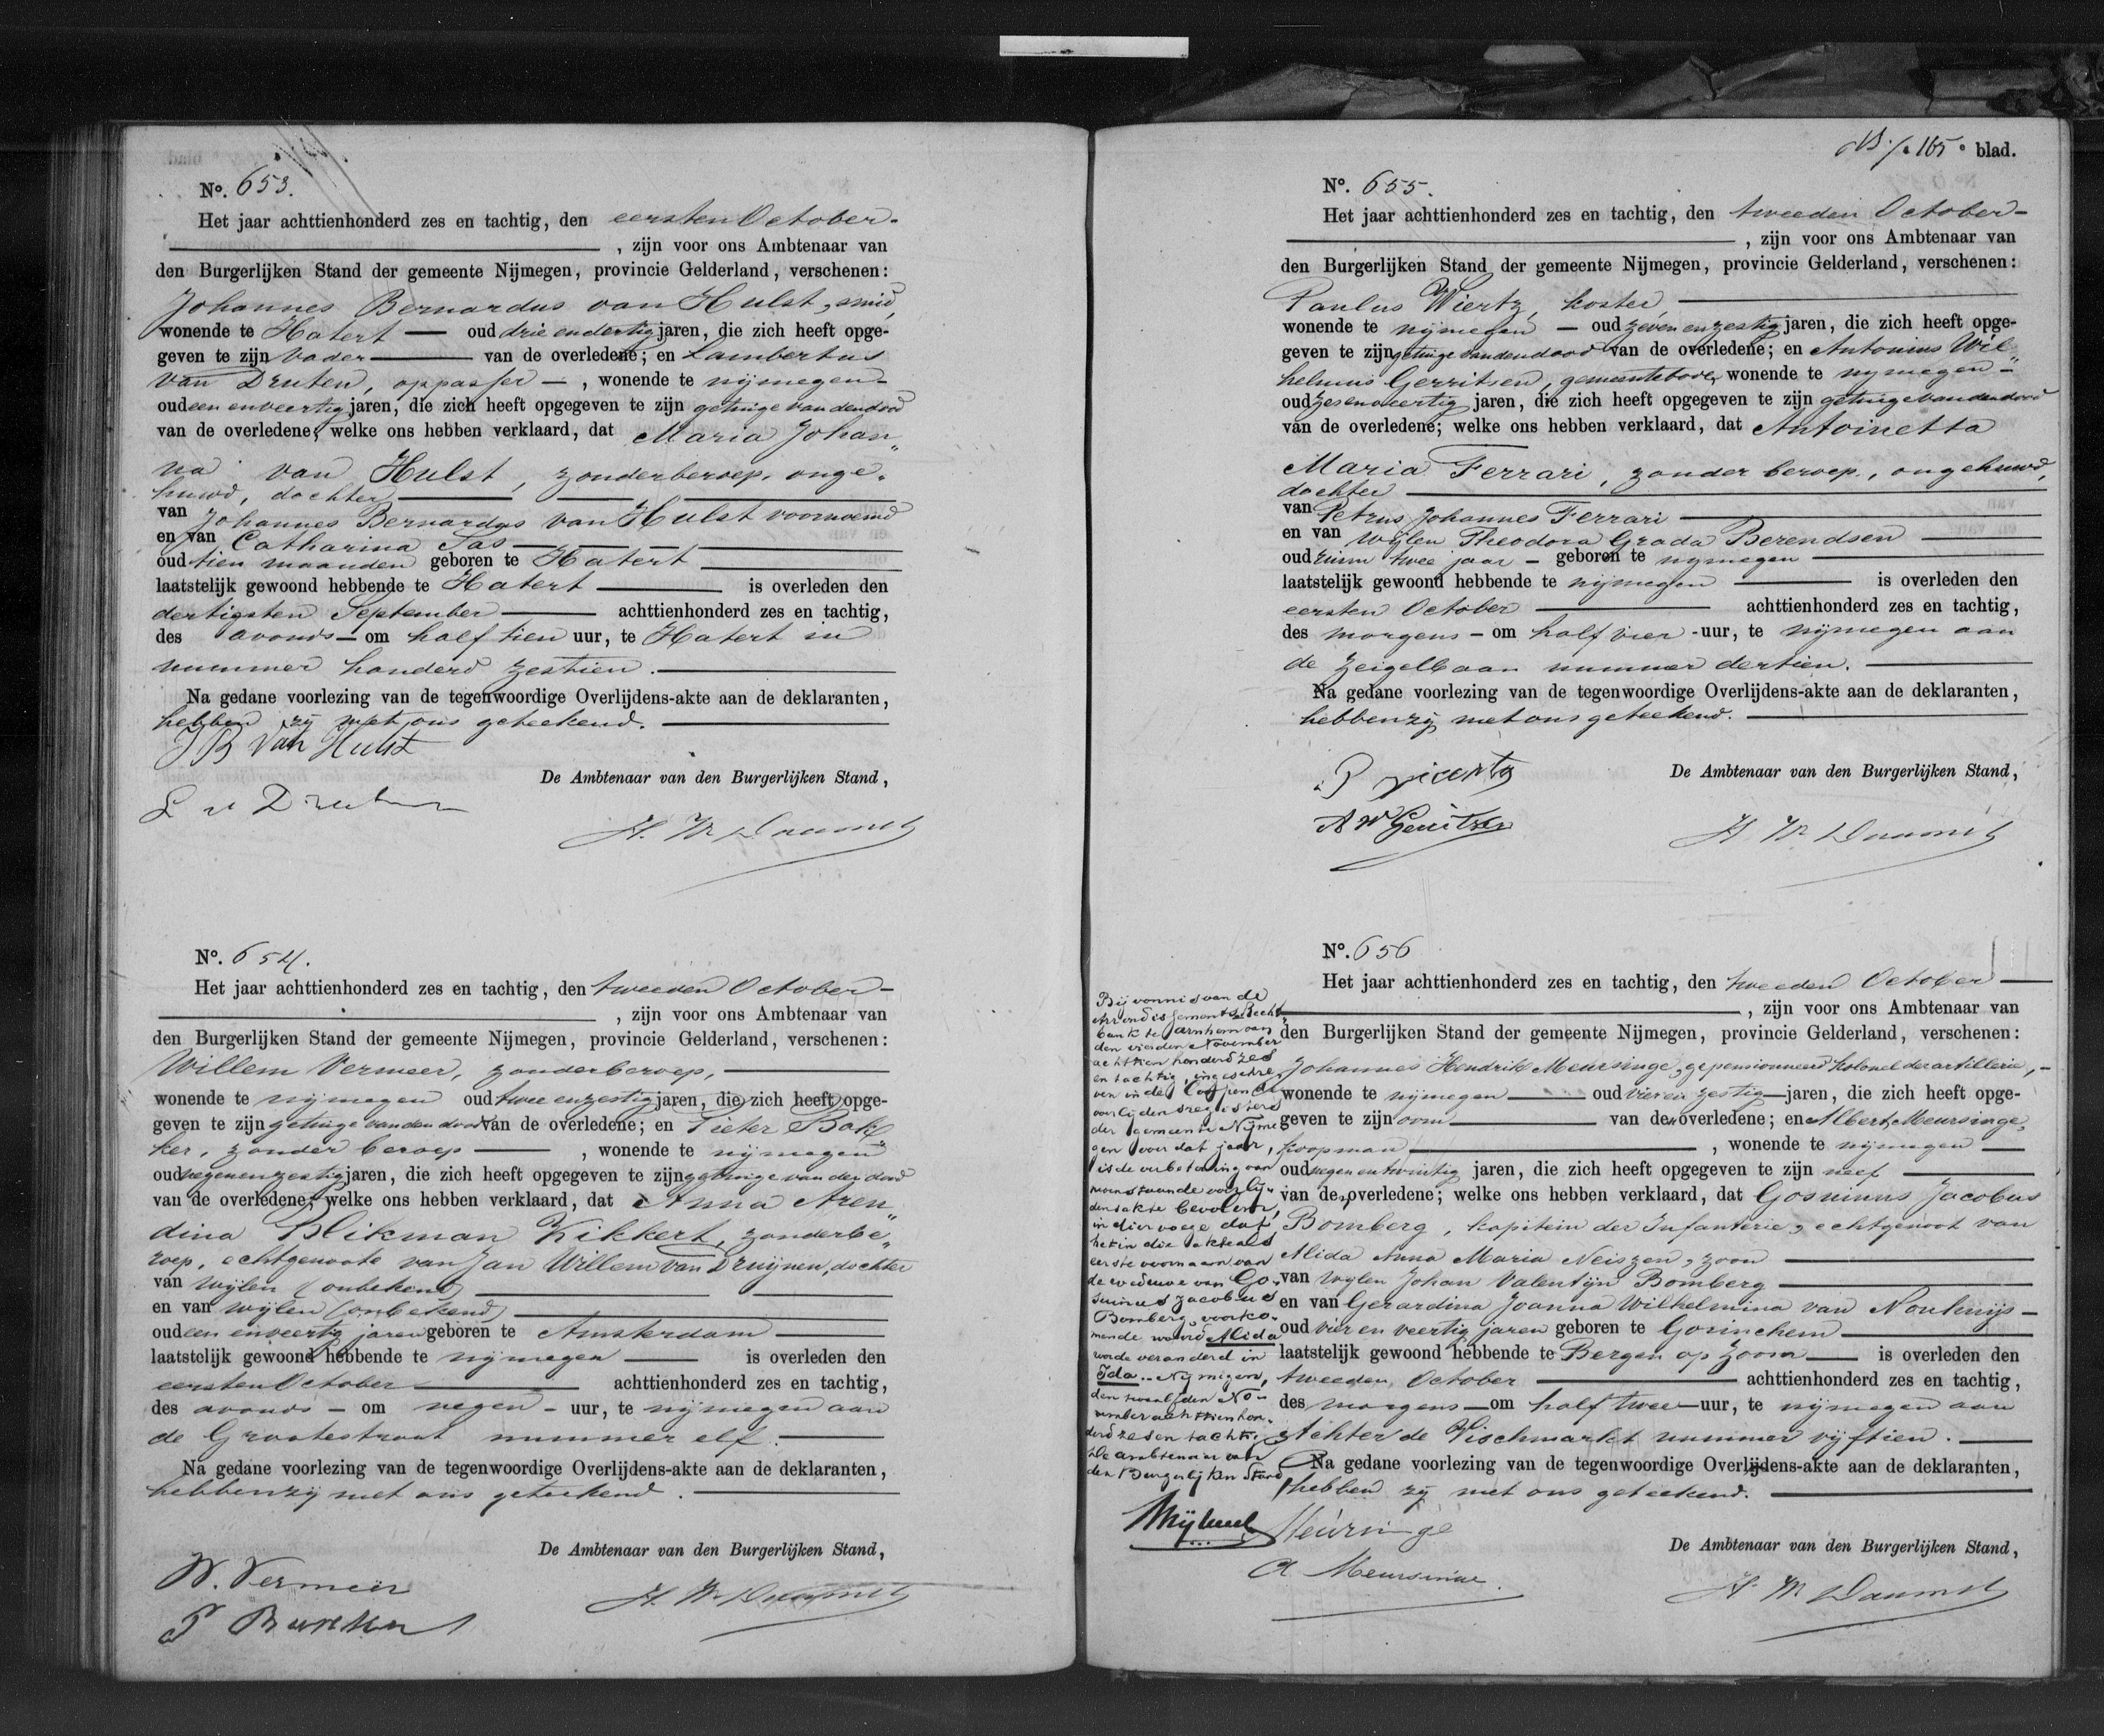 No. 653.
Het jaar achttienhonderd zes en tachtig, den eersten October
, zijn voor ons Ambtenaar van
den Burgerlijken Stand der gemeente Nijmegen, provincie Gelderland, verschenen:
Johannes Bernardus van Hulst, smid,
wonende te Hatert oud drie en dertig jaren, die zich heeft opge-
geven te zijn vader van de overledene; en Lambertus
van Druten, oppasser, wonende te nijmegen
oud een en veertig jaren, die zich heeft opgegeven te zijn getuige van den dood
van de overledene; welke ons hebben verklaard, dat Maria Johan„
na van Hulst, zonder beroep, onge„
huwd, dochter
van Johannes Bernardus van Hulst voornoemd
en van Catharina Sas
oud tien maanden geboren te Hatert
laatstelijk gewoond hebbende te Hatert is overleden den
dertigsten September achttienhonderd zes en tachtig,
des avonds om half tien uur, te Hatert in
nummer honderd zestien.
Na gedane voorlezing van de tegenwoordige Overlijdens-akte aan de deklaranten,
hebben zij met ons geteekend.
J B van Hulst
De Ambtenaar van den Burgerlijken Stand,
L v Druten
No. 654.
Het jaar achttienhonderd zes en tachtig, den tweeden October
, zijn voor ons Ambtenaar van
den Burgerlijken Stand der gemeente Nijmegen, provincie Gelderland, verschenen:
Willem Vermeer, zonder beroep,
wonende te nijmegen oud twee en zestig jaren, die zich heeft opge-
geven te zijn getuige van den dood van de overledene; en Pieter Bak„
ker, zonder beroep, wonende te nijmegen
oud negen en zestig jaren, die zich heeft opgegeven te zijn getuige van den dood
van de overledene; welke ons hebben verklaard, dat Anna Aren„
dina Blikman Kikkert, zonder be„
roep, echtgenoote van Jan Willem van Druijnen, dochter
van wijlen (onbekend)
en van wijlen (onbekend)
oud een en veertig jaren geboren te Amsterdam
laatstelijk gewoond hebbende te nijmegen is overleden den
eersten October achttienhonderd zes en tachtig,
des avonds om negen uur, te nijmegen aan
de Grootestraat nummer elf.
Na gedane voorlezing van de tegenwoordige Overlijdens-akte aan de deklaranten,
hebben zij met ons geteekend.
De Ambtenaar van den Burgerlijken Stand,
W. Vermeer
P Bakker
165e blad.
No. 655.
Het jaar achttienhonderd zes en tachtig, den tweeden October
, zijn voor ons Ambtenaar van
den Burgerlijken Stand der gemeente Nijmegen, provincie Gelderland, verschenen:
Paulus Wiertz, koster,
wonende te nijmegen oud zeven en zestig jaren, die zich heeft opge-
geven te zijn getuige van den dood van de overledene; en Antonius Wil„
helmus Gerritsen, gemeentebode, wonende te nijmegen
oud zes en veertig jaren, die zich heeft opgegeven te zijn getuige van den dood
van de overledene; welke ons hebben verklaard, dat Antoinetta
Maria Ferrari, zonder beroep, ongehuwd,
dochter
van Petrus Johannes Ferrari
en van wijlen Theodora Grada Berendsen
oud ruim twee jaar geboren te nijmegen
laatstelijk gewoond hebbende te nijmegen is overleden den
eersten October achttienhonderd zes en tachtig,
des morgens om half vier uur, te nijmegen aan
de Zeigelbaan nummer dertien.
Na gedane voorlezing van de tegenwoordige Overlijdens-akte aan de deklaranten,
hebben zij met ons geteekend.
P Wiertz
De Ambtenaar van den Burgerlijken Stand,
A W Gerritsen
No. 656
Het jaar achttienhonderd zes en tachtig, den tweeden October
, zijn voor ons Ambtenaar van
den Burgerlijken Stand der gemeente Nijmegen, provincie Gelderland, verschenen:
Johannes Hendrik Meursinge, gepensionneerd Kolonel der artillerie,
wonende te nijmegen oud vier en zestig jaren, die zich heeft opge-
geven te zijn oom van den overledene; en Albert Meursinge,
koopman, wonende te nijmegen
oud negen en twintig jaren, die zich heeft opgegeven te zijn neef
van den overledene; welke ons hebben verklaard, dat Gosuinus Jacobus
Bomberg, kapitein der Infanterie, echtgenoot van
Alida Anna Maria Neiszen, zoon
van wijlen Johan Valentijn Bomberg
en van Gerardina Joanna Wilhelmina van Nouhuijs
oud vier en veertig jaren geboren te Gorinchem
laatstelijk gewoond hebbende te Bergen op Zoom is overleden den
tweeden October achttienhonderd zes en tachtig,
des morgens om half twee uur, te nijmegen aan
Achter de Vischmarkt nummer vijftien.
Na gedane voorlezing van de tegenwoordige Overlijdens-akte aan de deklaranten,
hebben zij met ons geteekend.
Bij vonnis van de
Arrondissements Recht„
bank te Arnhem van
den vierden November
achttien honderd zes
en tachtig, ingeschre„
ven in de loopende
overlijdensregisters
der gemeente Nijme„
gen over dat jaar,
is de verbetering van
nevenstaande overlij„
densakte bevolen,
in dier voege dat
het in die akte als
eerste voornaam van
de weduwe van Go„
suinus Jacobus
Bomberg, voorko„
mende woord Alida
worde veranderd in
Ida. Nijmegen,
den twaalfden No„
vember achttienhon„
derd zes en tachtig
De ambtenaar van
den Burgerlijken Stand,
Meursinge
De Ambtenaar van den Burgerlijken Stand,
A Meursinge.